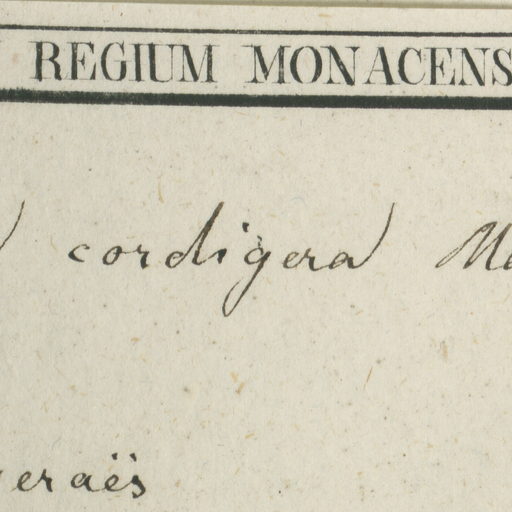 REGIUM MONACENS
cordigera M
eraës